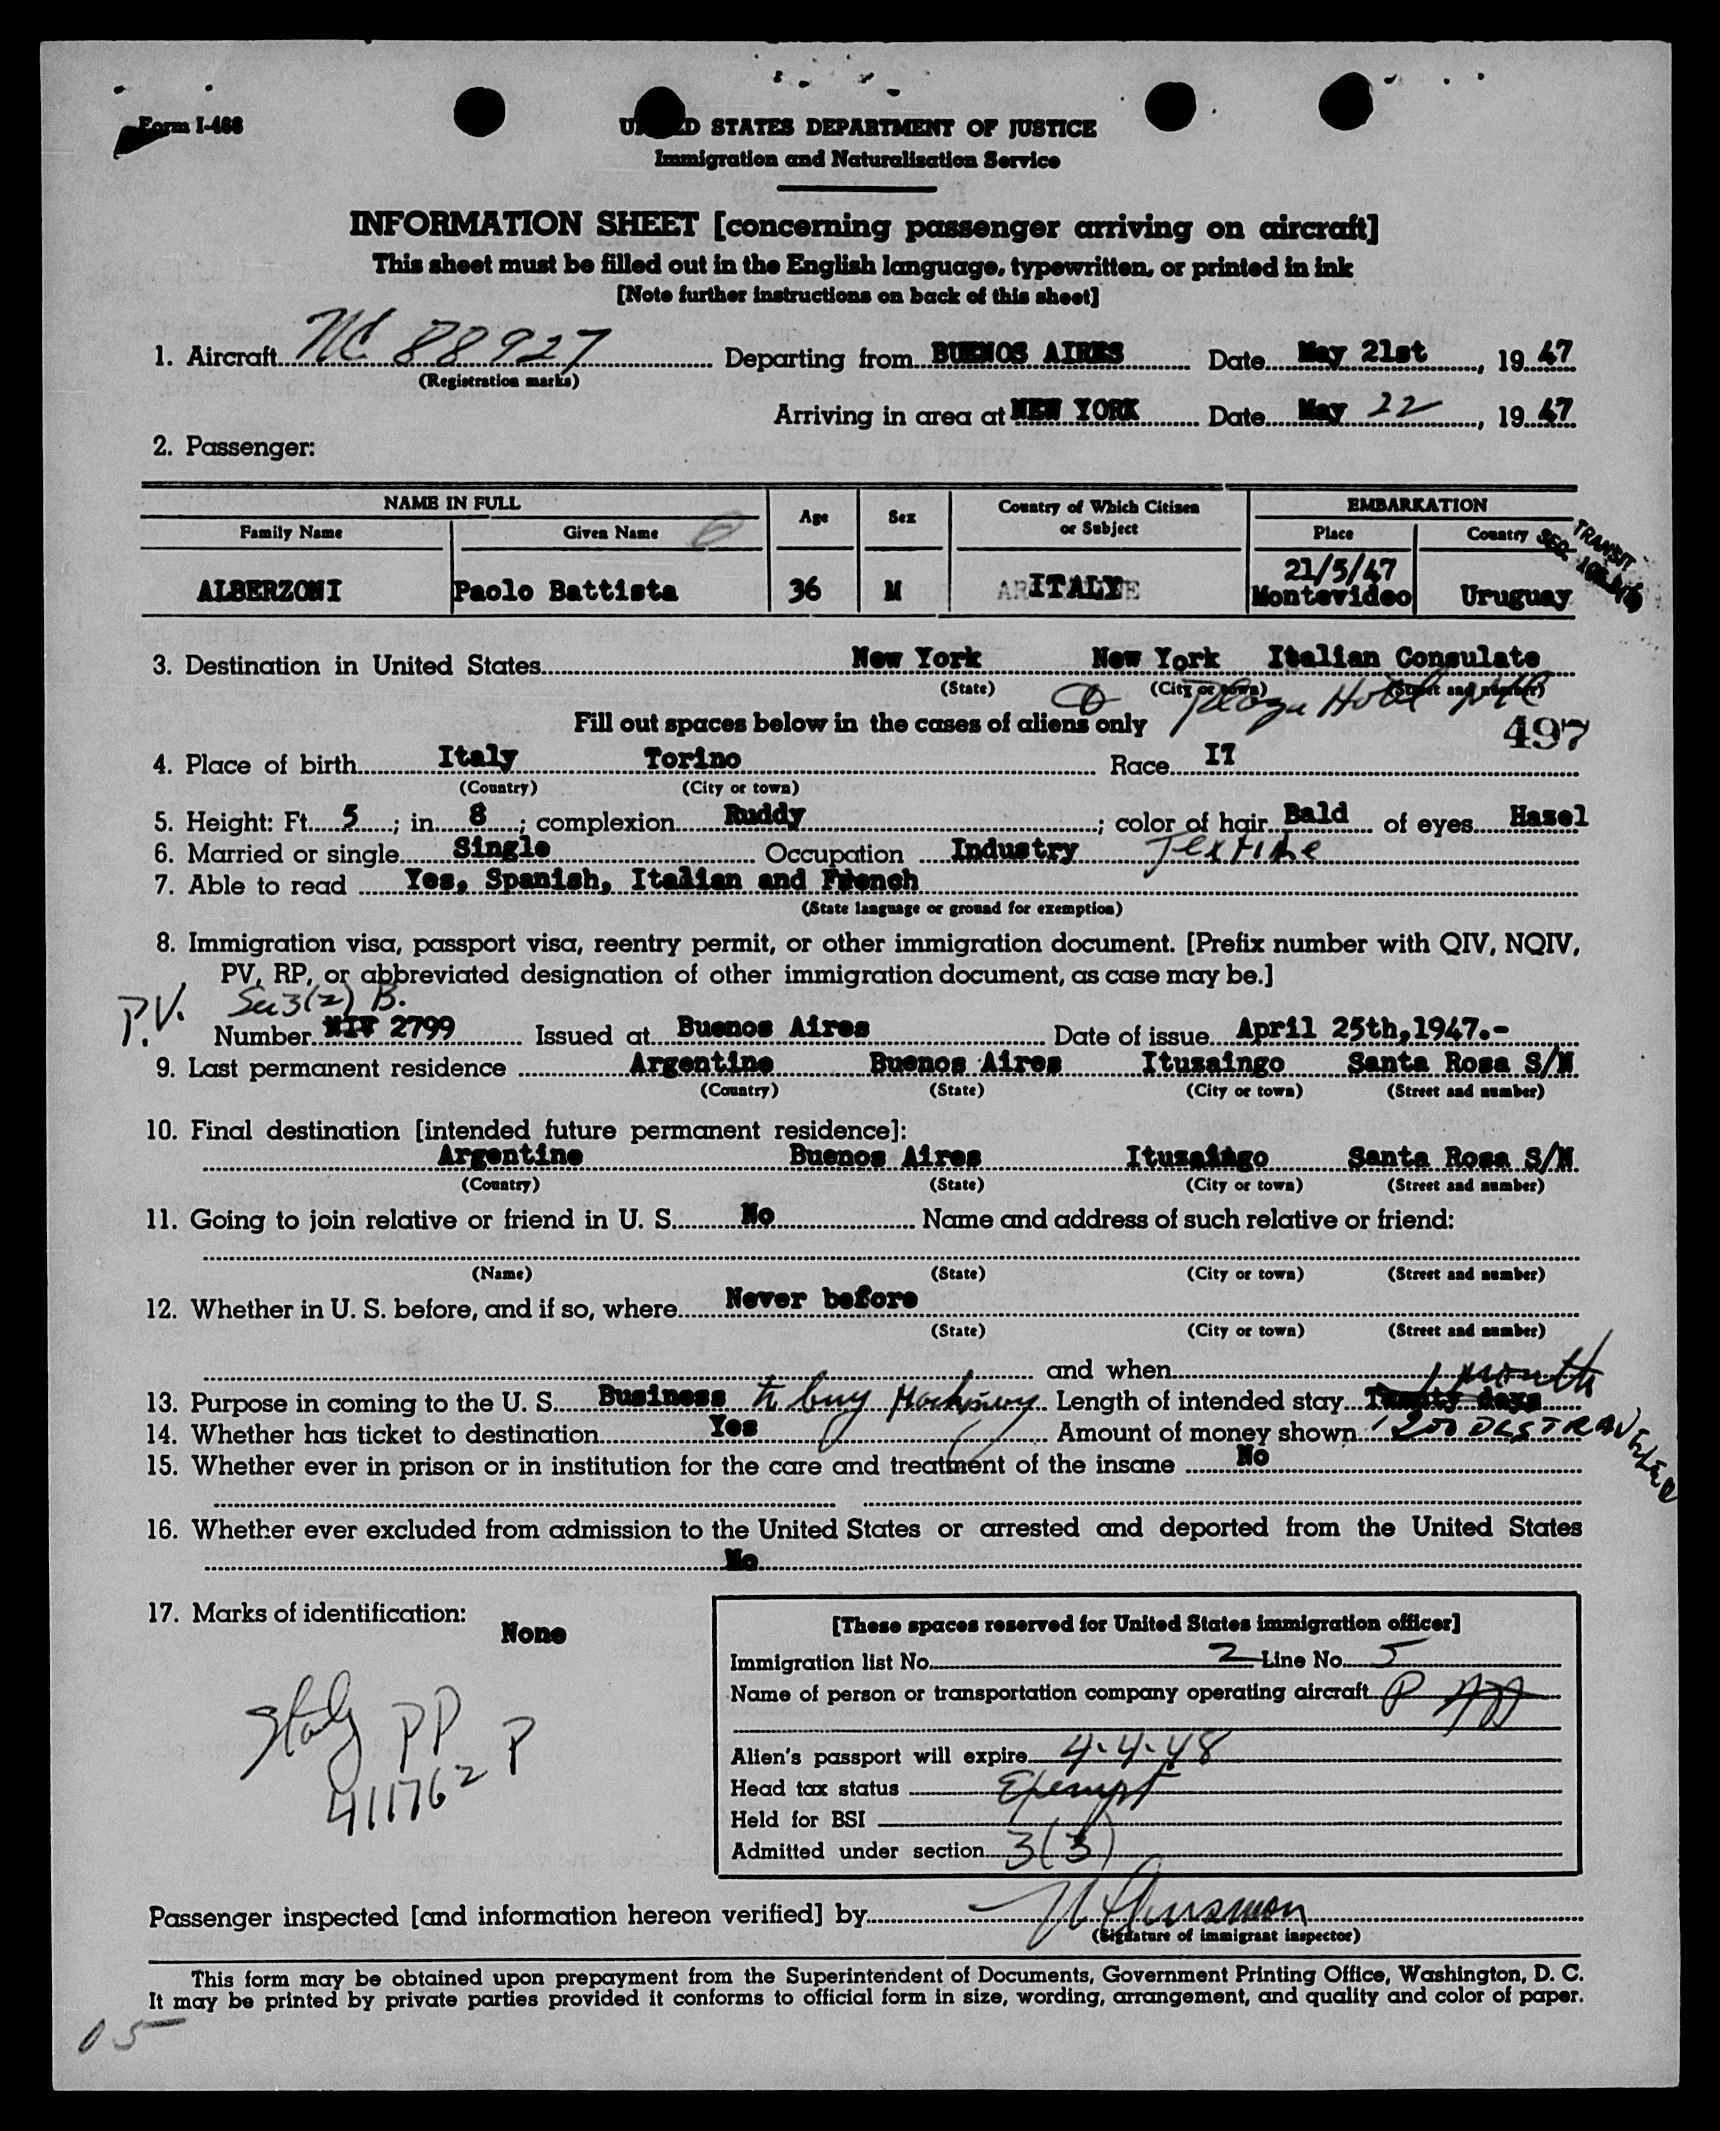 Form I-466
UNITED STATES DEPARTMENT OF JUSTICE
Immigration and Naturalization Service
INFORMATION SHEET [concerning passenger arriving on aircraft]
This sheet must be filled out in the English language, typewritten, or printed in ink
[Note further instructions on back of this sheet]
1. Aircraft NC 88927 Departing from BUENOS AIRES Date May 21st, 1947
(Registration marks)
Arriving in area at NEW YORK Date May 22, 1947
2. Passenger:
NAME IN FULL Age Sex Country of Which Citizen or Subject EMBARKATION
Family Name Given Name Place Country
TRANSIT
SEC.
21/5/47
ALBERZONI Paolo Battista 36 M ITALY Montevideo Uruguay
3. Destination in United States New York New York Italian Consulate
(State) (City or town) (Street and number)
Plaza Hotel NYC
Fill out spaces below in the cases of aliens only
497
4. Place of birth Italy Torino Race IT
(Country) (City or town)
5. Height: Ft. 5; in. 8; complexion Ruddy; color of hair Bald of eyes Hazel
6. Married or single Single Occupation Industry Textile
7. Able to read Yes, Spanish, Italian and French
(State language or ground for exemption)
8. Immigration visa, passport visa, reentry permit, or other immigration document. [Prefix number with QIV, NQIV,
PV, RP, or abbreviated designation of other immigration document, as case may be.]
P.V. Sec 3(2) B.
Number NIV 2799 Issued at Buenos Aires Date of issue April 25th,1947.-
9. Last permanent residence Argentine Buenos Aires Ituzaingo Santa Rosa S/N
(Country) (State) (City or town) (Street and number)
10. Final destination [intended future permanent residence]:
Argentine Buenos Aires Ituzaingo Santa Rosa S/N
(Country) (State) (City or town) (Street and number)
11. Going to join relative or friend in U. S. No Name and address of such relative or friend:
(Name) (State) (City or town) (Street and number)
12. Whether in U. S. before, and if so, where Never before
(State) (City or town) (Street and number)
and when
1 month
13. Purpose in coming to the U. S. Business to buy Machinery Length of intended stay Twenty days
14. Whether has ticket to destination Yes Amount of money shown 1200 DLS TRAVELER
15. Whether ever in prison or in institution for the care and treatment of the insane No
16. Whether ever excluded from admission to the United States or arrested and deported from the United States
No
17. Marks of identification:
None
Italy PP
411762 P
[These spaces reserved for United States immigration officer]
Immigration list No. 2 Line No. 5
Name of person or transportation company operating aircraft P
Alien's passport will expire 4.4.48
Head tax status Exempt
Held for BSI
Admitted under section 3(3)
Passenger inspected [and information hereon verified] by
(Signature of immigrant inspector)
This form may be obtained upon prepayment from the Superintendent of Documents, Government Printing Office, Washington, D. C.
It may be printed by private parties provided it conforms to official form in size, wording, arrangement, and quality and color of paper.
05